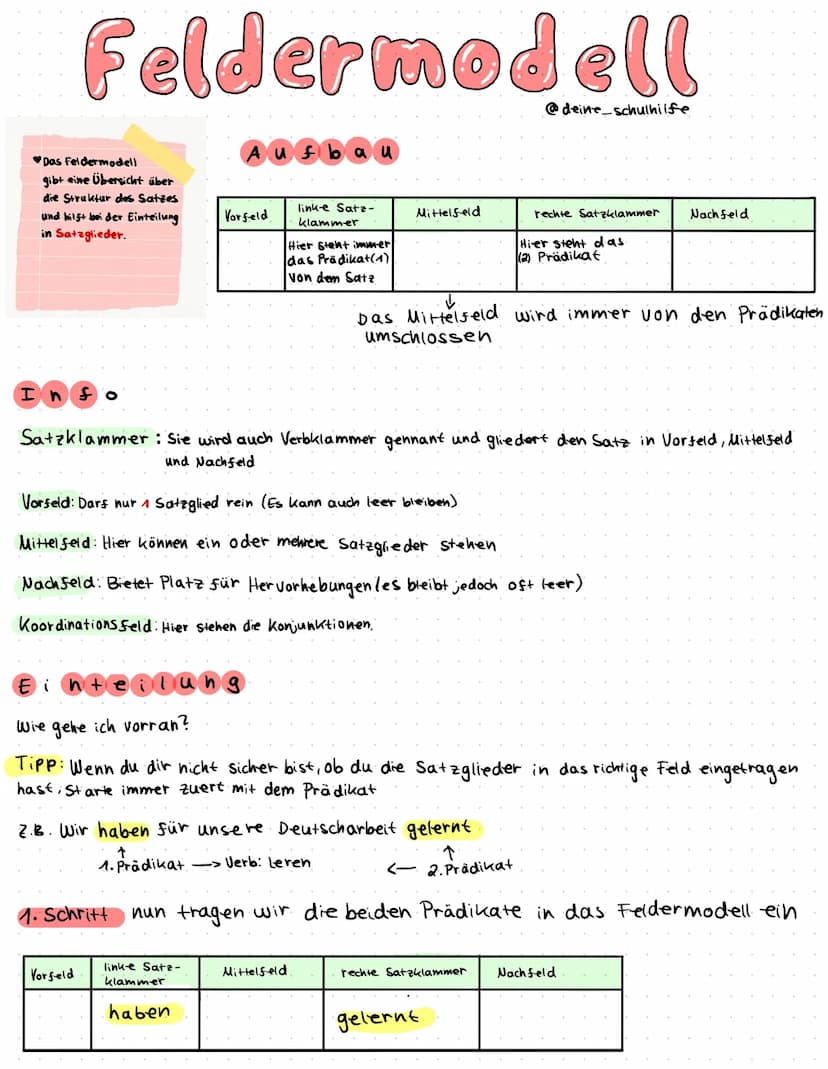 Feldermodell
@deine_schulhilfe
♥Das Feldermodell
gibt eine Übersicht über
die Struktur des Satzes
und hilft bei der Einteilung
in Satzglieder.
Aufbau
Vorfeld
linke Satz-
klammer
Mittelfeld
rechte Satzklammer
Nachfeld
Hier steht immer
das Prädikat(1)
von dem Satz
Hier steht das
(2) Prädikat
↓
Das Mittelfeld wird immer von den Prädikaten
umschlossen
Info
Satzklammer: Sie wird auch Verbklammer gennant und gliedert den Satz in Vorfeld, Mittelfeld
und Nachfeld
Vorfeld: Darf nur 1 Satzglied rein (Es kann auch leer bleiben)
Mittelfeld: Hier können ein oder mehrere Satzglieder stehen
Nachfeld: Bietet Platz für Hervorhebungen (es bleibt jedoch oft leer)
Koordinationsfeld: Hier stehen die Konjunktionen.
Einteilung
Wie gehe ich vorran?
Tipp: Wenn du dir nicht sicher bist, ob du die Satzglieder in das richtige Feld eingetragen
hast, starte immer zuert mit dem Prädikat
z.B. Wir haben für unsere Deutscharbeit gelernt
↑ ↑
1. Prädikat → Verb: leren ← 2. Prädikat
1. Schritt nun tragen wir die beiden Prädikate in das Feldermodell ein
Vorfeld
linke Satz-
klammer
Mittelfeld
rechte Satzklammer
Nachfeld
haben
gelernt